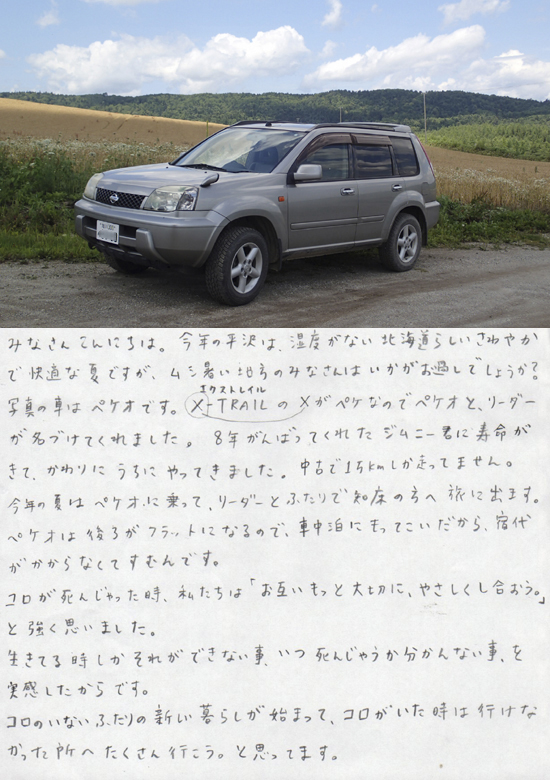 みなさんこんにちは。今年の平沢は、湿度がない北海道らしいさわやか
で快適な夏ですが、ムシ暑い地方のみなさんはいかがお過しでしょうか?
写真の車はペケオです。X-TRAILのXがペケなのでペケオと、リーダー
エクストレイル
が名づけてくれました。8年がんばってくれたジムニー君に寿命が
きて、かわりにうちにやってきました。中古で1万kmしか走ってません。
今年の夏はペケオに乗って、リーダーとふたりで知床の方へ旅に出ます。
ペケオは後ろがフラットになるので、車中泊にもってこいだから、宿代
がかからなくてすむんです。
コロが死んじゃった時、私たちは「お互いもっと大切に、やさしくし合おう。」
と強く思いました。
生きてる時しかそれができない事、いつ死んじゃうか分かんない事、を
実感したからです。
コロのいないふたりの新しい暮らしが始まって、コロがいた時は行けな
かった所へたくさん行こう。と思ってます。